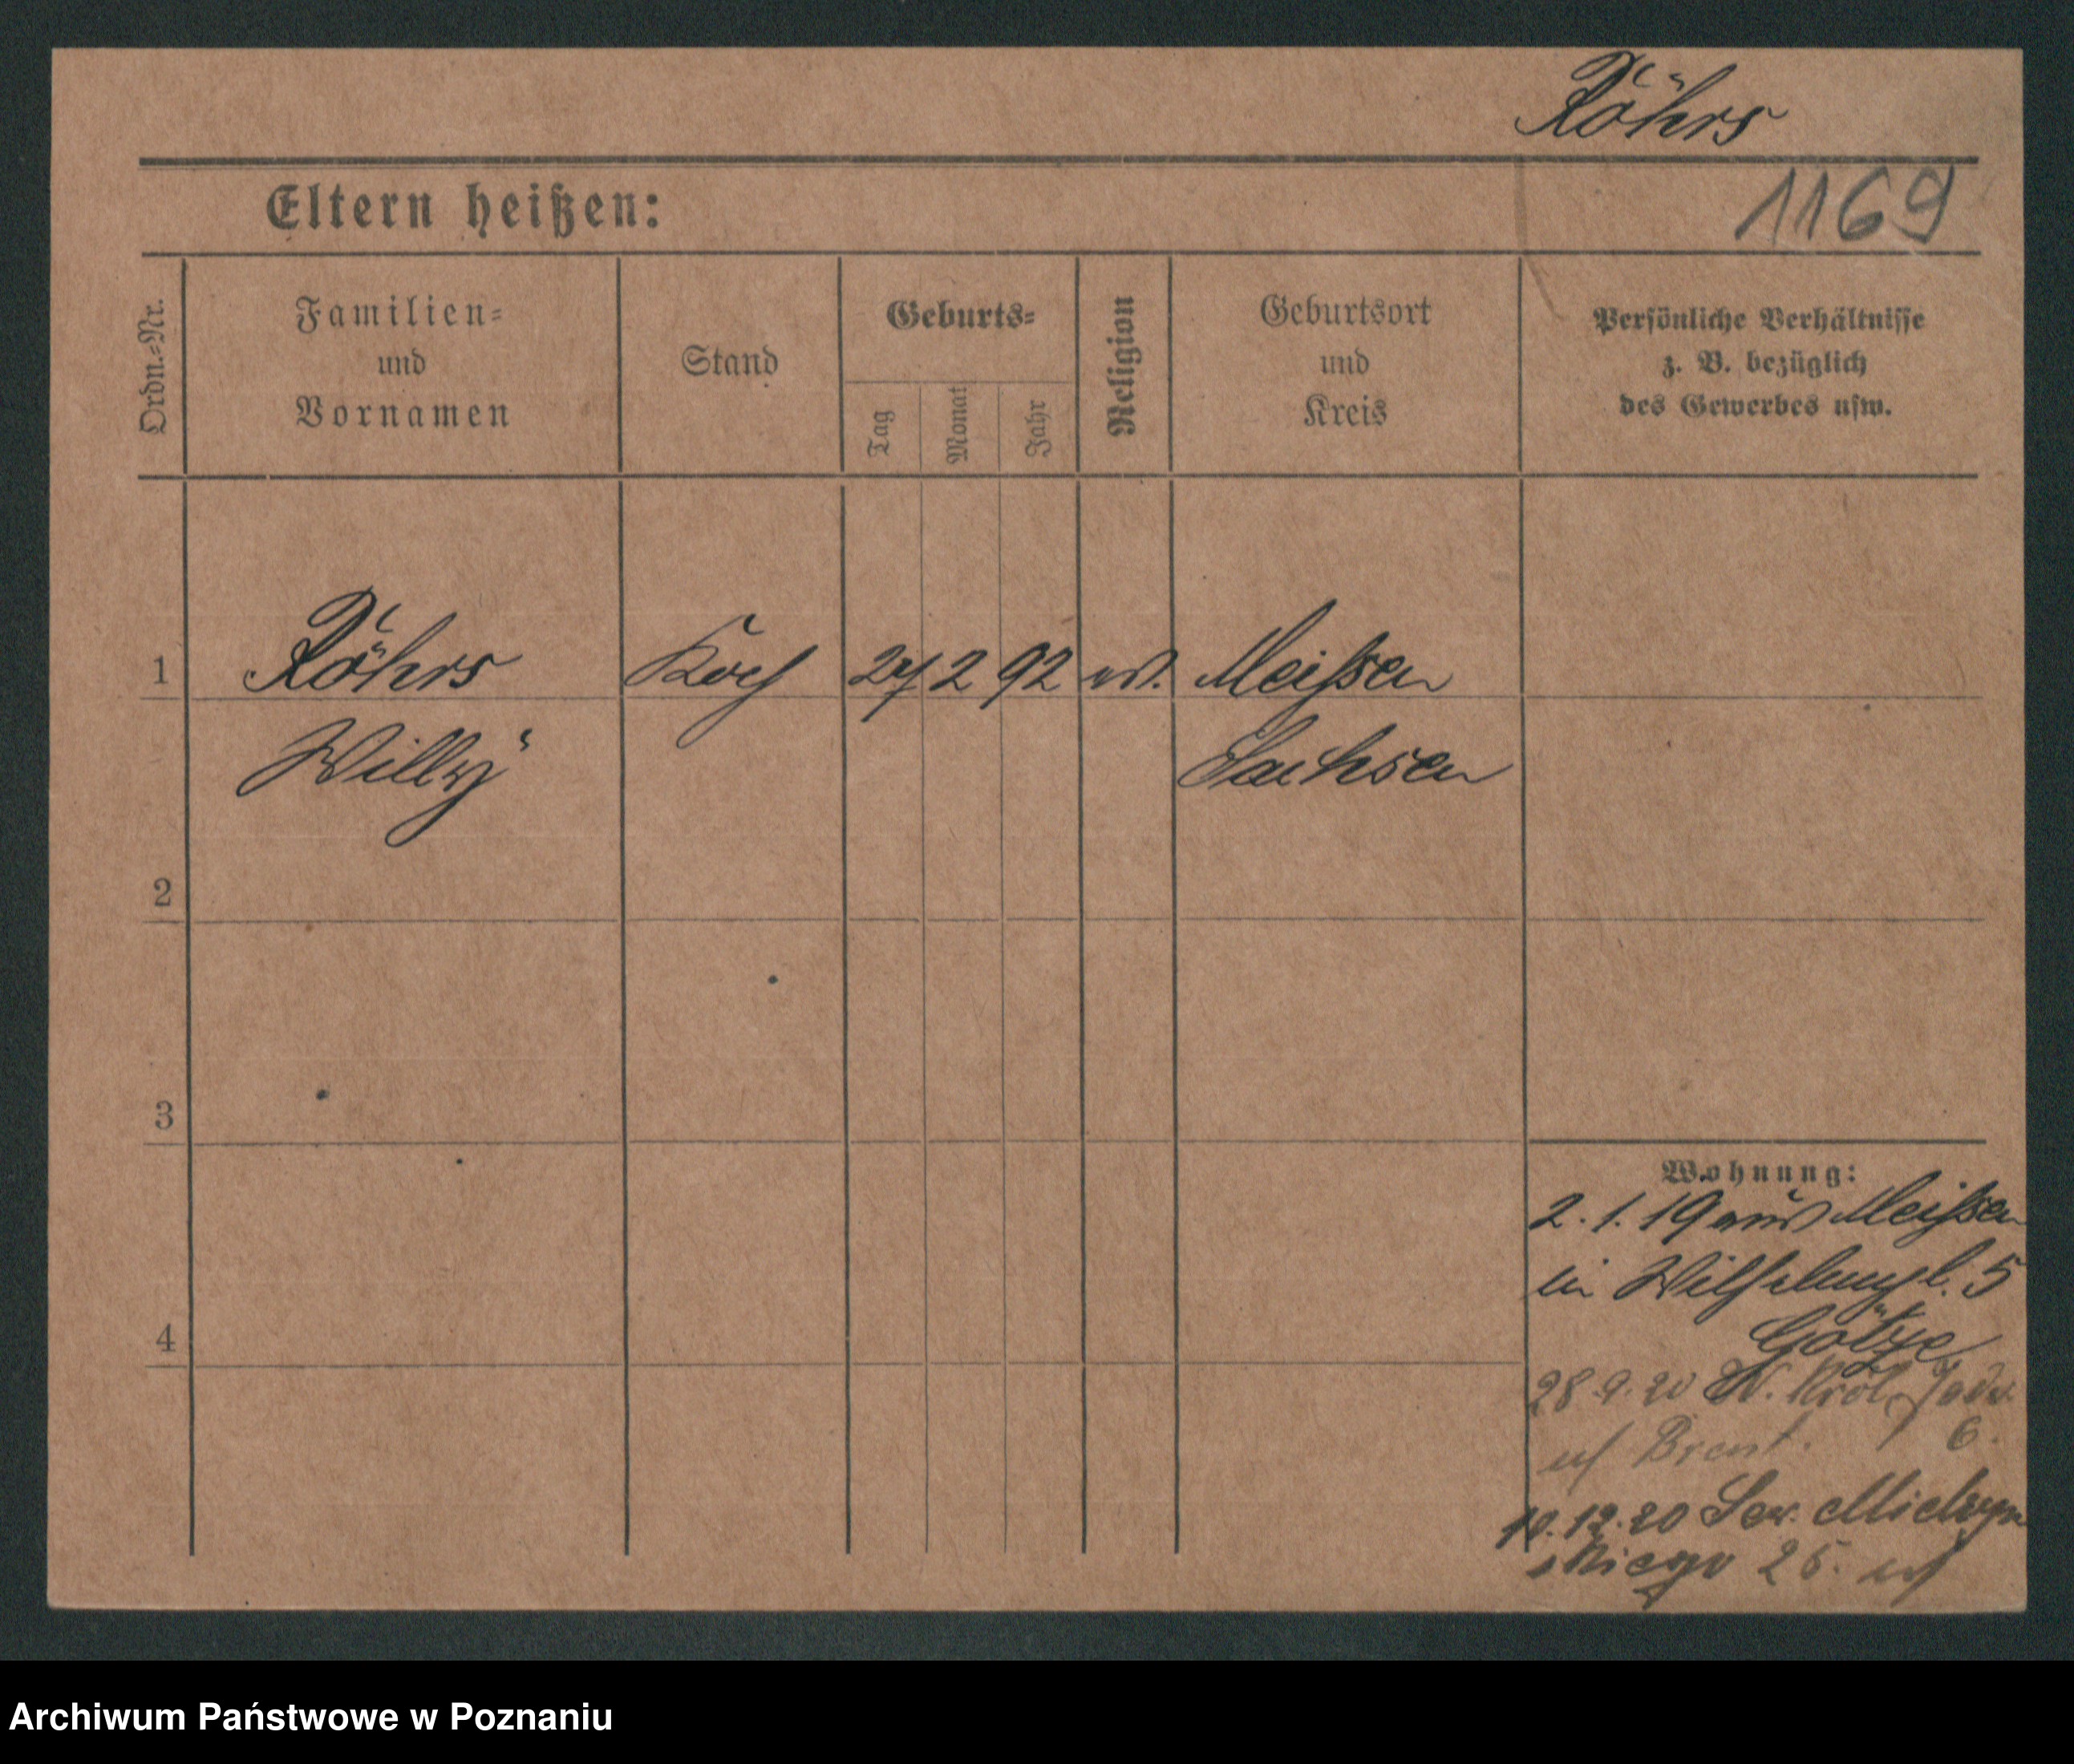 Röhrs
Eltern heißen:
1169
Ordn.-Nr.
Familien-
und
Vornamen
Stand
Geburts-
Tag
Monat
Jahr
Religion
Geburtsort
und
Kreis
Persönliche Verhältnisse
z. B. bezüglich
des Gewerbes usw.
1
Röhrs
Koch
27 2 92
Meißen
Willy
Sachsen
2
3
4
Wohnung:
2.1.19 aus Meißen
in
5
Götze
28.9.20 W. Król. Jadw.
b/ Brent. 6.
12.20 Sew.
25.
Archiwum Państwowe w Poznaniu